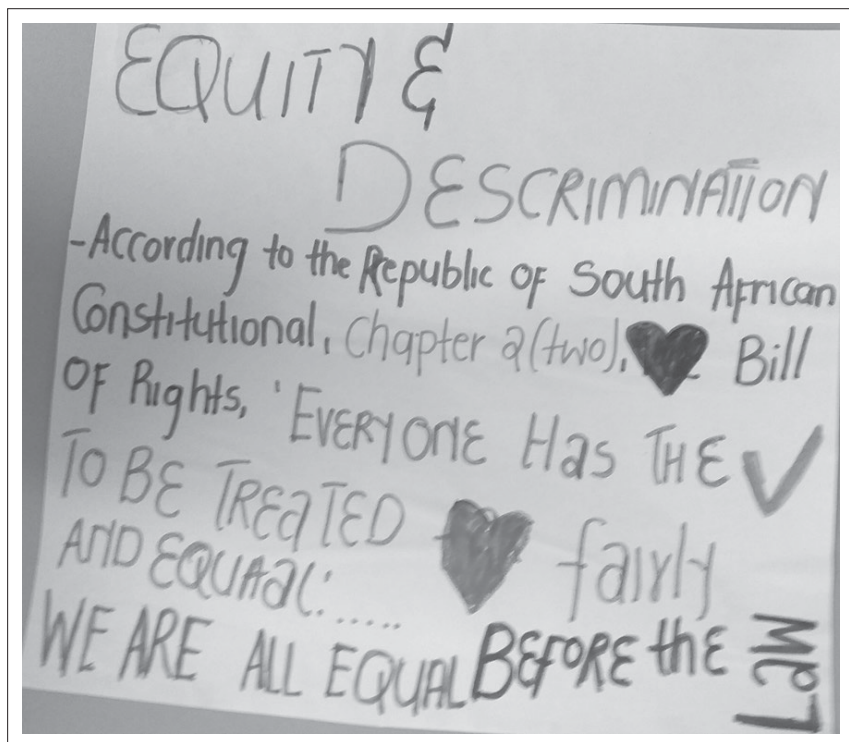 EQUITY &
DESCRIMINATION
-According to the Republic of South African
Constitutional, Chapter 2(two), Bill
OF Rights, 'EVERYONE Has THE ✓
TO BE TREaTED fairly
AND EQUAaL:.....
WE ARE ALL EQUAL BEFORE the LaW